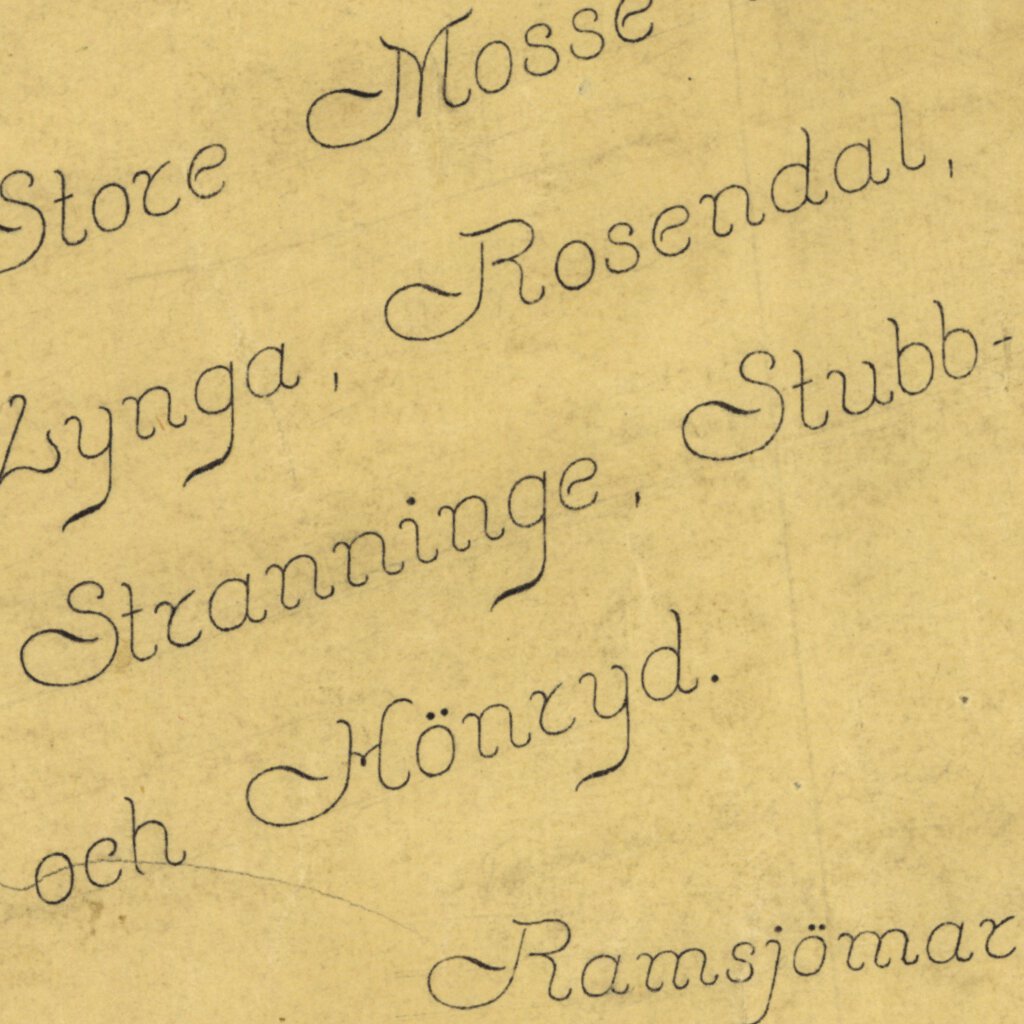 Store Mosse
Lynga, Rosendal,
Stranninge, Stubb-
och Hönryd.
Ramsjömar